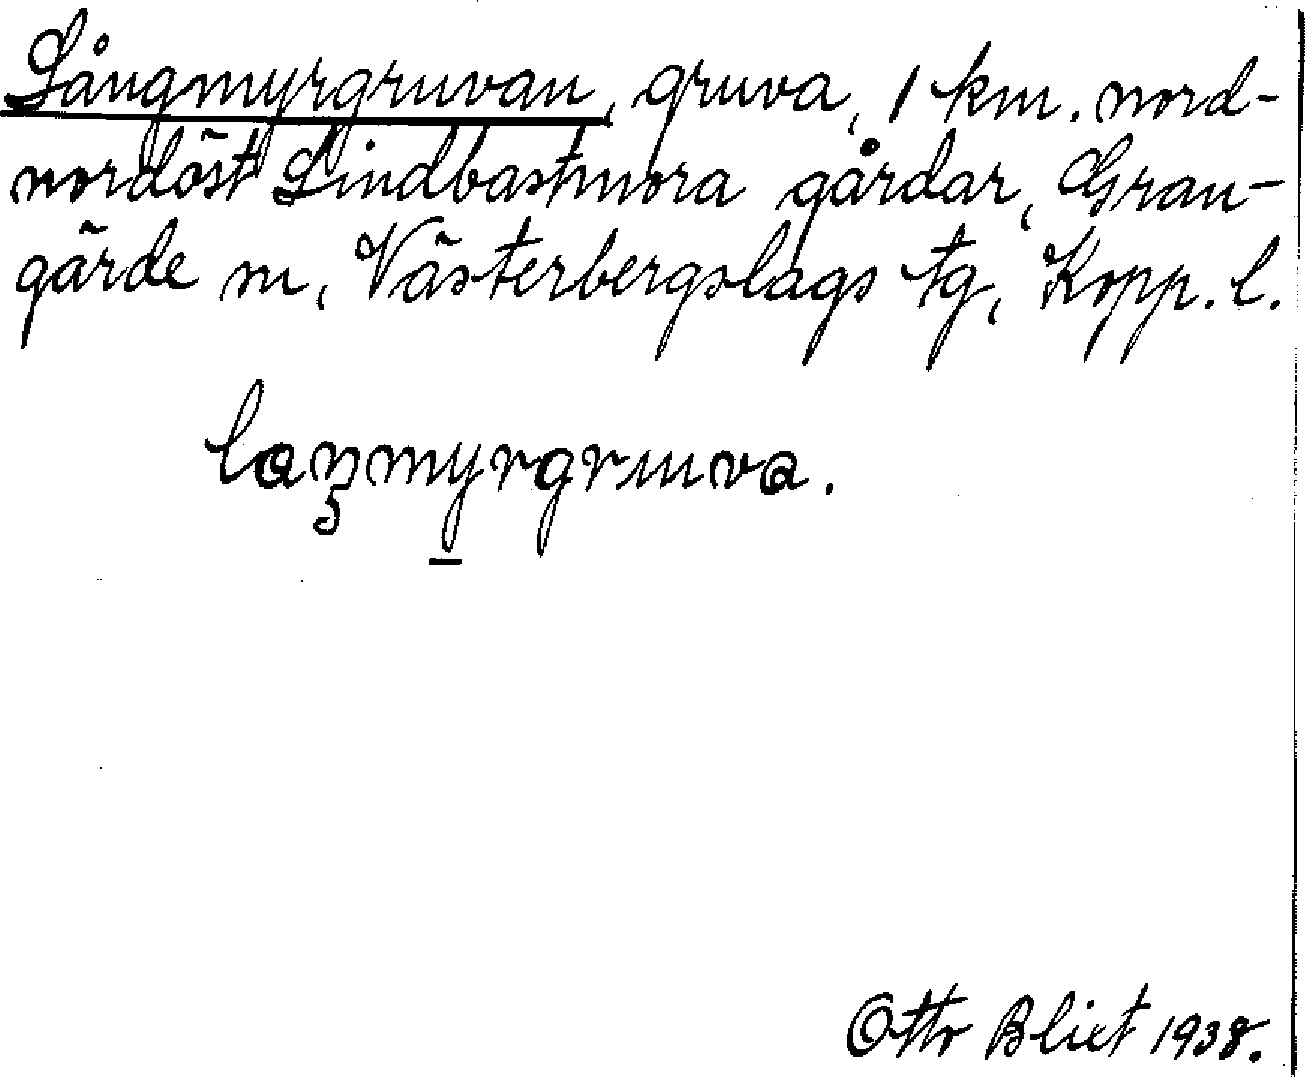 Långmyrgruvan, gruva, 1 km. nord-
nordöst Lindbastmora gårdar, Gran-
gärde sn, Västerbergslags tg, Kopp. l.
laŋmyrgruva.
Otto Blixt 1938.